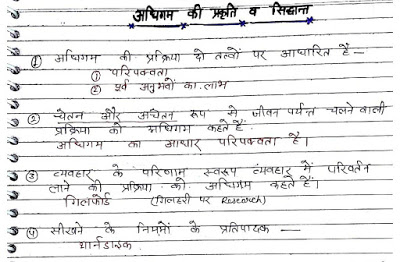 अधिगम की प्रकृति व सिद्धान्त
① अधिगम की प्रक्रिया दो तत्वों पर आधारित है —
① परिपक्वता
② पूर्व अनुभवों का लाभ
② चेतन और अचेतन रूप से जीवन पर्यन्त चलने वाली
प्रक्रिया को अधिगम कहते हैं.
अधिगम का आधार परिपक्वता है।
③ व्यवहार के परिणाम स्वरूप व्यवहार में परिवर्तन
लाने की प्रक्रिया को अधिगम कहते हैं।
गिलफोर्ड (गिलहरी पर Research)
④ सीखने के नियमों के प्रतिपादक —
थार्नडाइक.